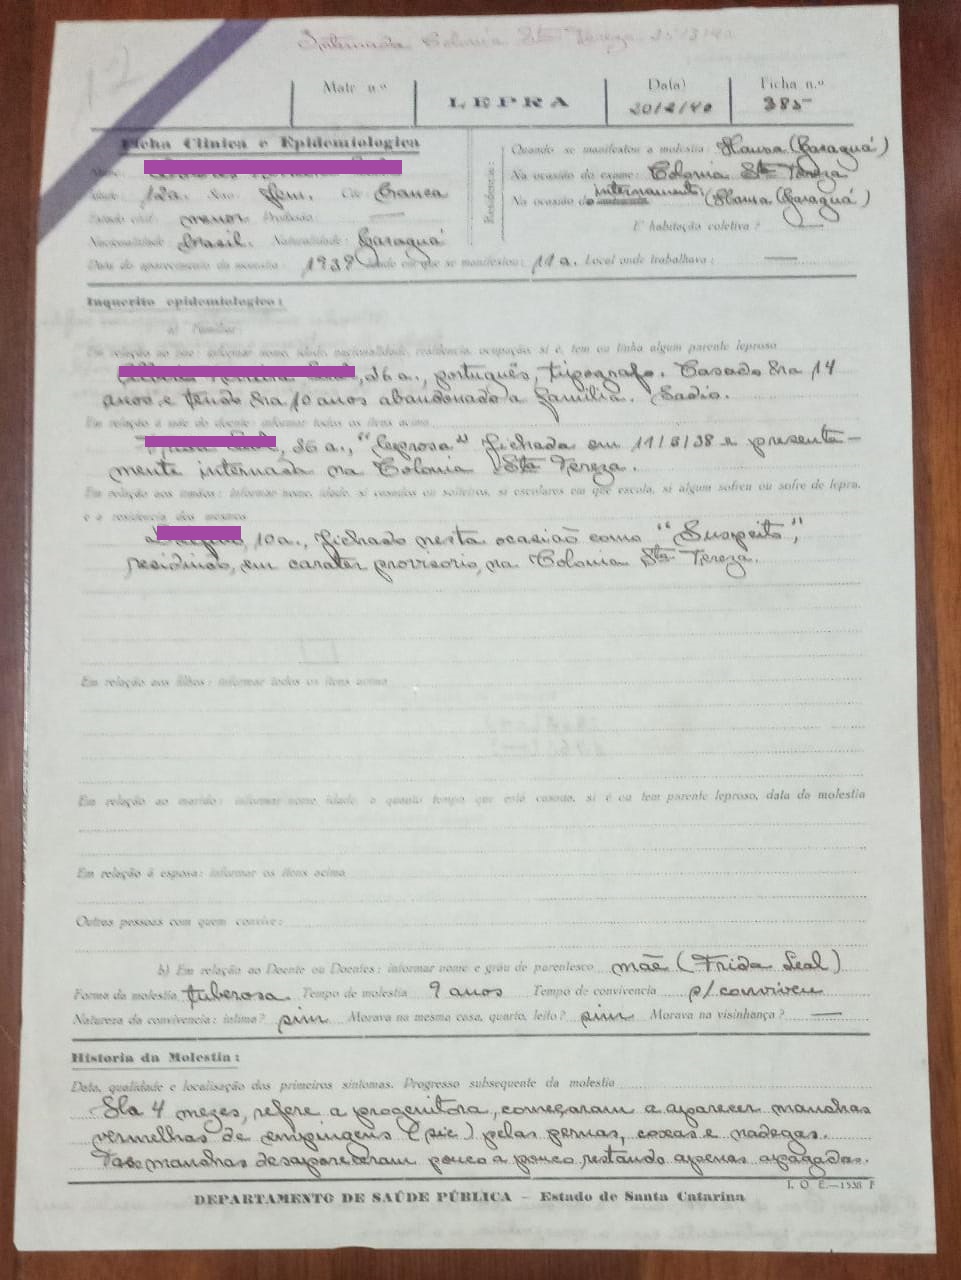 Internada Colonia Sta Tereza
Matr n.º
LEPRA
Data)
20/2/40
Ficha n.º
385
Ficha Clinica e Epidemiologica
Idade: 12a. Sexo Fem. Côr Branca
Estado civil: menor Profissão: —
Nacionalidade: Brasil. Naturalidade: Jaraguá
Data do aparecimento da molestia: 1939 Idade em que se manifestou: 11a. Local onde trabalhava: —
Residencia:
Quando se manifestou a molestia: Hansa (Jaraguá)
Na ocasião do exame: Colonia Sta Tereza
Na ocasião do internamento: Hansa (Jaraguá)
E' habitação coletiva? —
Inquerito epidemiologico:
a) Familiar:
Em relação ao pai: informar nome, idade, nacionalidade, residencia, ocupação, si é, tem ou tinha algum parente leproso
, 36 a., português, tipografo. Casado ha 14
anos e tendo ha 10 anos abandonado a familia. Sadio.
Em relação á mãe do doente: informar todos os itens acima
, 36 a., "leprosa" fichada em 11/8/38 e presente-
mente internada na Colonia Sta Tereza.
Em relação aos irmãos: informar nome, idade, si casados ou solteiros, si escolares em que escola, si algum sofreu ou sofre de lepra,
e a residencia dos mesmos
, 10 a., fichado nesta ocasião como "Suspeito",
residindo, em carater provisorio, na Colonia Sta Tereza.
Em relação aos filhos: informar todos os itens acima
Em relação ao marido: informar nome, idade, a quanto tempo que está casada, si é ou tem parente leproso, data da molestia
Em relação á esposa: informar os itens acima
Outras pessoas com quem convive:
b) Em relação ao Doente ou Doentes: informar nome e gráu de parentesco mãe (Frida Leal)
Forma da molestia tuberosa. Tempo de molestia 9 anos Tempo de convivencia s/ conviveu
Natureza da convivencia: intima? sim Morava na mesma casa, quarto, leito? sim Morava na visinhança? —
Historia da Molestia:
Data, qualidade e localisação dos primeiros sintomas. Progresso subsequente da molestia
Ha 4 mezes, refere a progenitora, começaram a aparecer manchas
vermelhas de empingens (sic) pelas pernas, coxas e nadegas.
manchas desapareceram pouco a pouco, restando apenas apagadas.
I. O. E.—1938 F
DEPARTAMENTO DE SAÚDE PÚBLICA – Estado de Santa Catarina